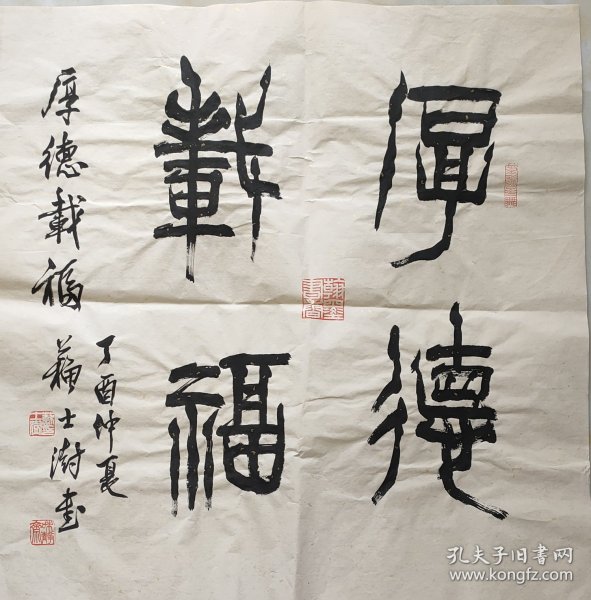 厚德
載福
厚德載福
丁酉仲夏
蘇士澍書
孔夫子旧书网
www.kongfz.com